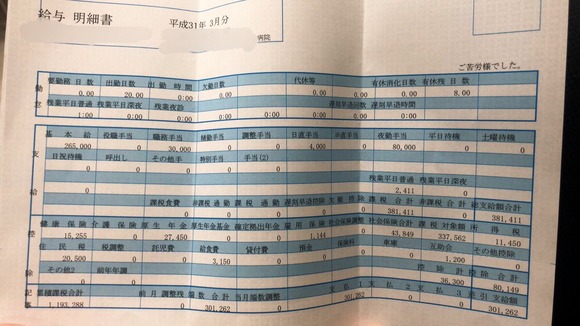 給与 明細書 平成31年 3月分
病院
ご苦労様でした。
要勤務日数 出勤日数 出勤時間 欠勤日数 代休等 有休消化日数 有休残日数
0.00 20.00 0:00 0.00 0.00 0.00 8.00
残業平日普通 残業平日深夜 残業夜診 遅刻早退回数 遅刻早退時間
1:00 0:00 0:00 0:00 0:00 0 0:00
基本給 役職手当 職務手当 補勤手当 調整手当 日直手当 当直手当 夜勤手当 平日待機 土曜待機
265,000 0 30,000 0 0 4,000 0 80,000 0 0
日祝待機 呼出し その他手 特別手当 手当(2)
0 0 0 0 0
残業平日普通 残業平日深夜
2,411 0
課税食費 非課税通勤 課税通勤 遅刻早退控除 欠勤控除 課税合計 非課税合計 総支給額合計
0 0 0 0 0 381,411 0 381,411
健康保険 介護保険 厚生年金 厚生年金基金 確定拠出年金 雇用保険 社会保調整 社会保険合計 課税対象額 所得税
15,255 0 27,450 0 0 1,144 0 43,849 337,562 11,450
住民税 税調整 託児費 給食費 貸付費 預金 保険料 車庫 互助会 その他控除
20,500 0 0 3,150 0 0 0 0 1,200 0
その他2 前年年調 控除計 控除合計
0 0 36,300 80,149
累積課税合計 前月調整残 端数合計 当月端数調整 支払1 支払2 支払3 差引支給額
1,193,288 0 301,262 0 301,262 0 0 301,262